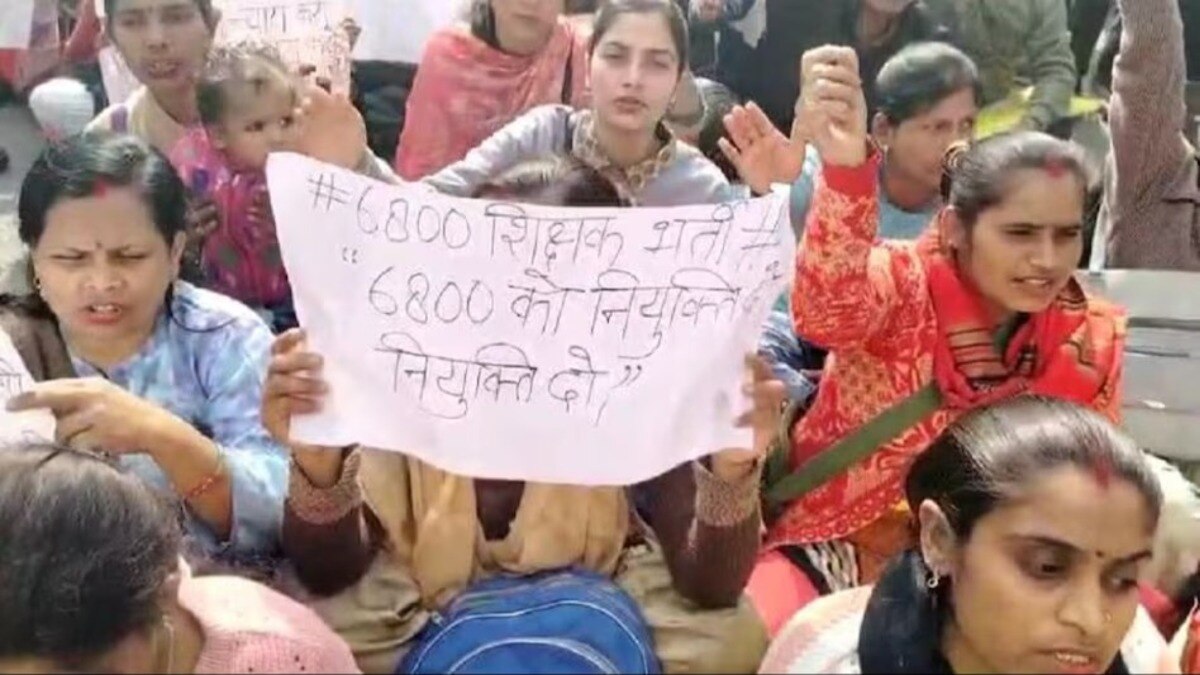 #6800 शिक्षक भर्ती #
"6800 को नियुक्ति
नियुक्ति दो,"